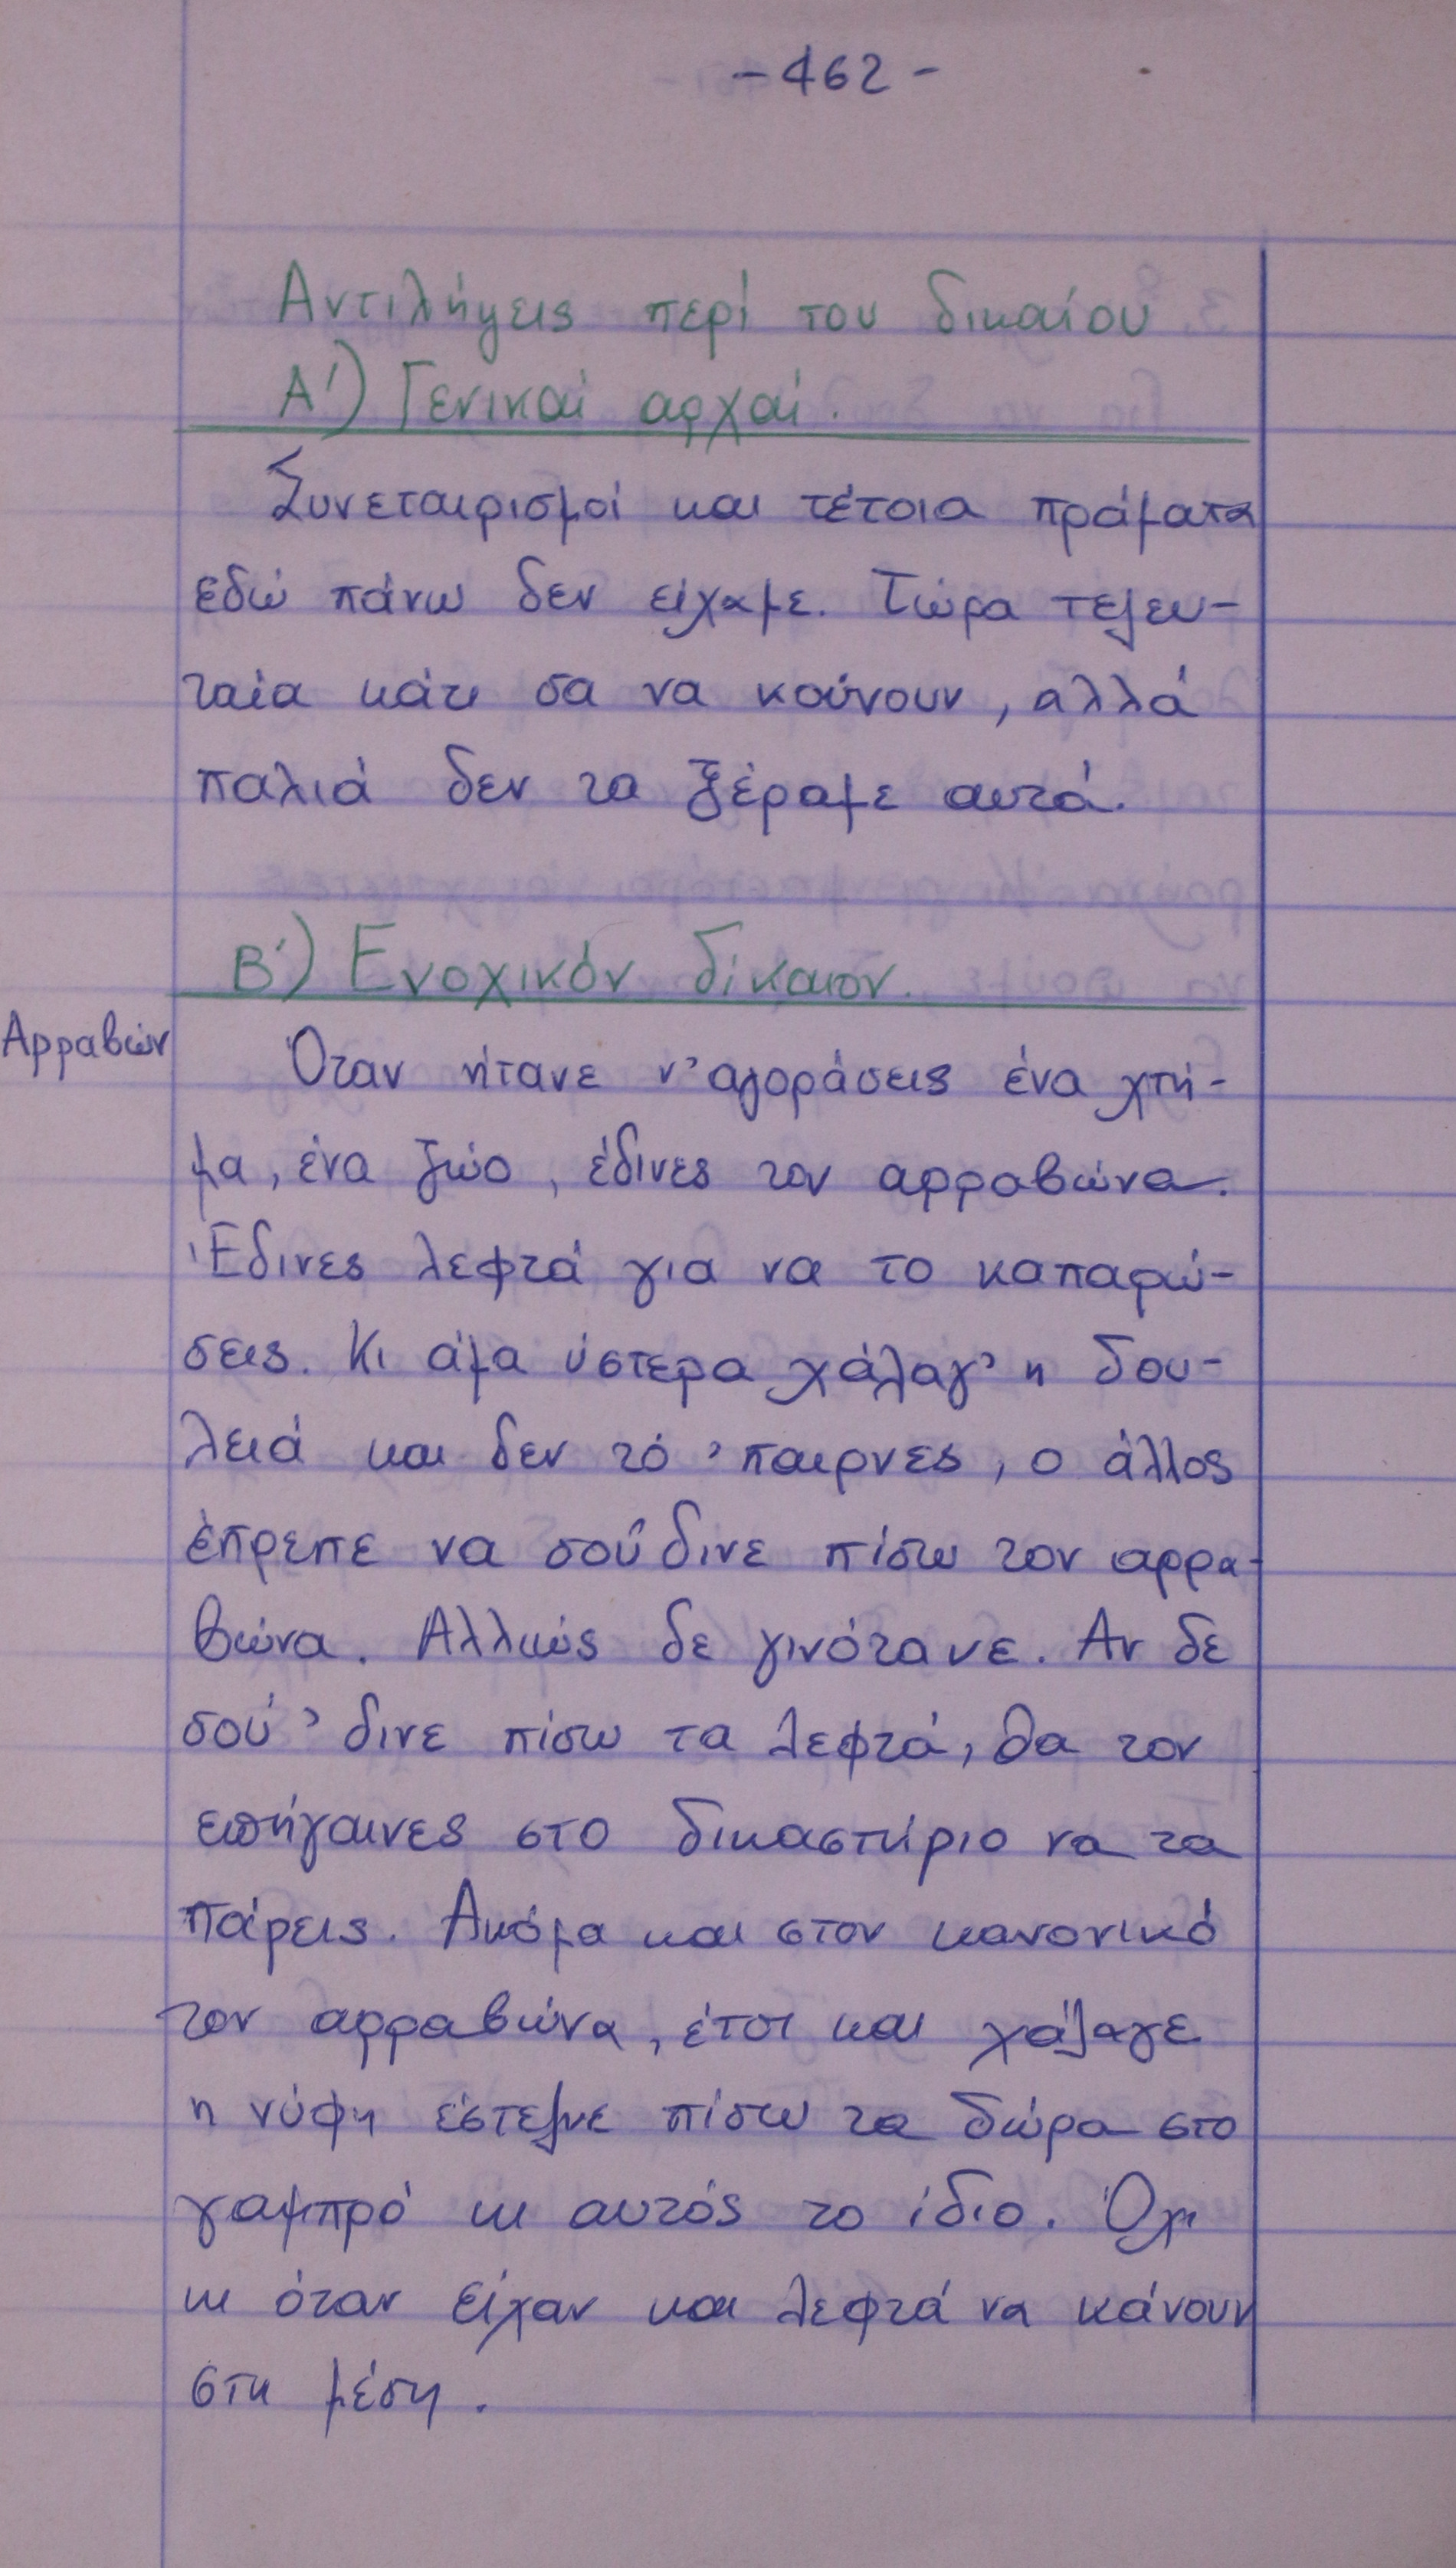 - 462 -
Αντιλήψεις περί του δικαίου
Α') Γενικαί αρχαί.
Συνεταιρισμοί και τέτοια πράματα
εδώ πάνω δεν είχαμε. Τώρα τελευ-
ταία κάτι σα να κούνουν, αλλά
παλιά δεν τα ξέραμε αυτά.
Β') Ενοχικόν δίκαιον.
Αρραβών
Όταν ήτανε ν' αγοράσεις ένα χτή-
μα, ένα ζώο, έδινες τον αρραβώνα.
Έδινες λεφτά για να το καπαρώ-
σεις. Κι άμα ύστερα χάλαγ' η δου-
λειά και δεν τό 'παιρνες, ο άλλος
έπρεπε να σού δινε πίσω τον αρρα-
βώνα. Αλλιώς δε γινότανε. Αν δε
σού 'δινε πίσω τα λεφτά, θα τον
επήγαινες στο δικαστήριο να τα
πάρεις. Ακόμα και στον κανονικό
τον αρραβώνα, έτσι και χάλαγε
η νύφη έστελνε πίσω τα δώρα στο
γαμπρό κι αυτός το ίδιο. Όχι
κι όταν είχαν και λεφτά να κάνουν
στη μέση.